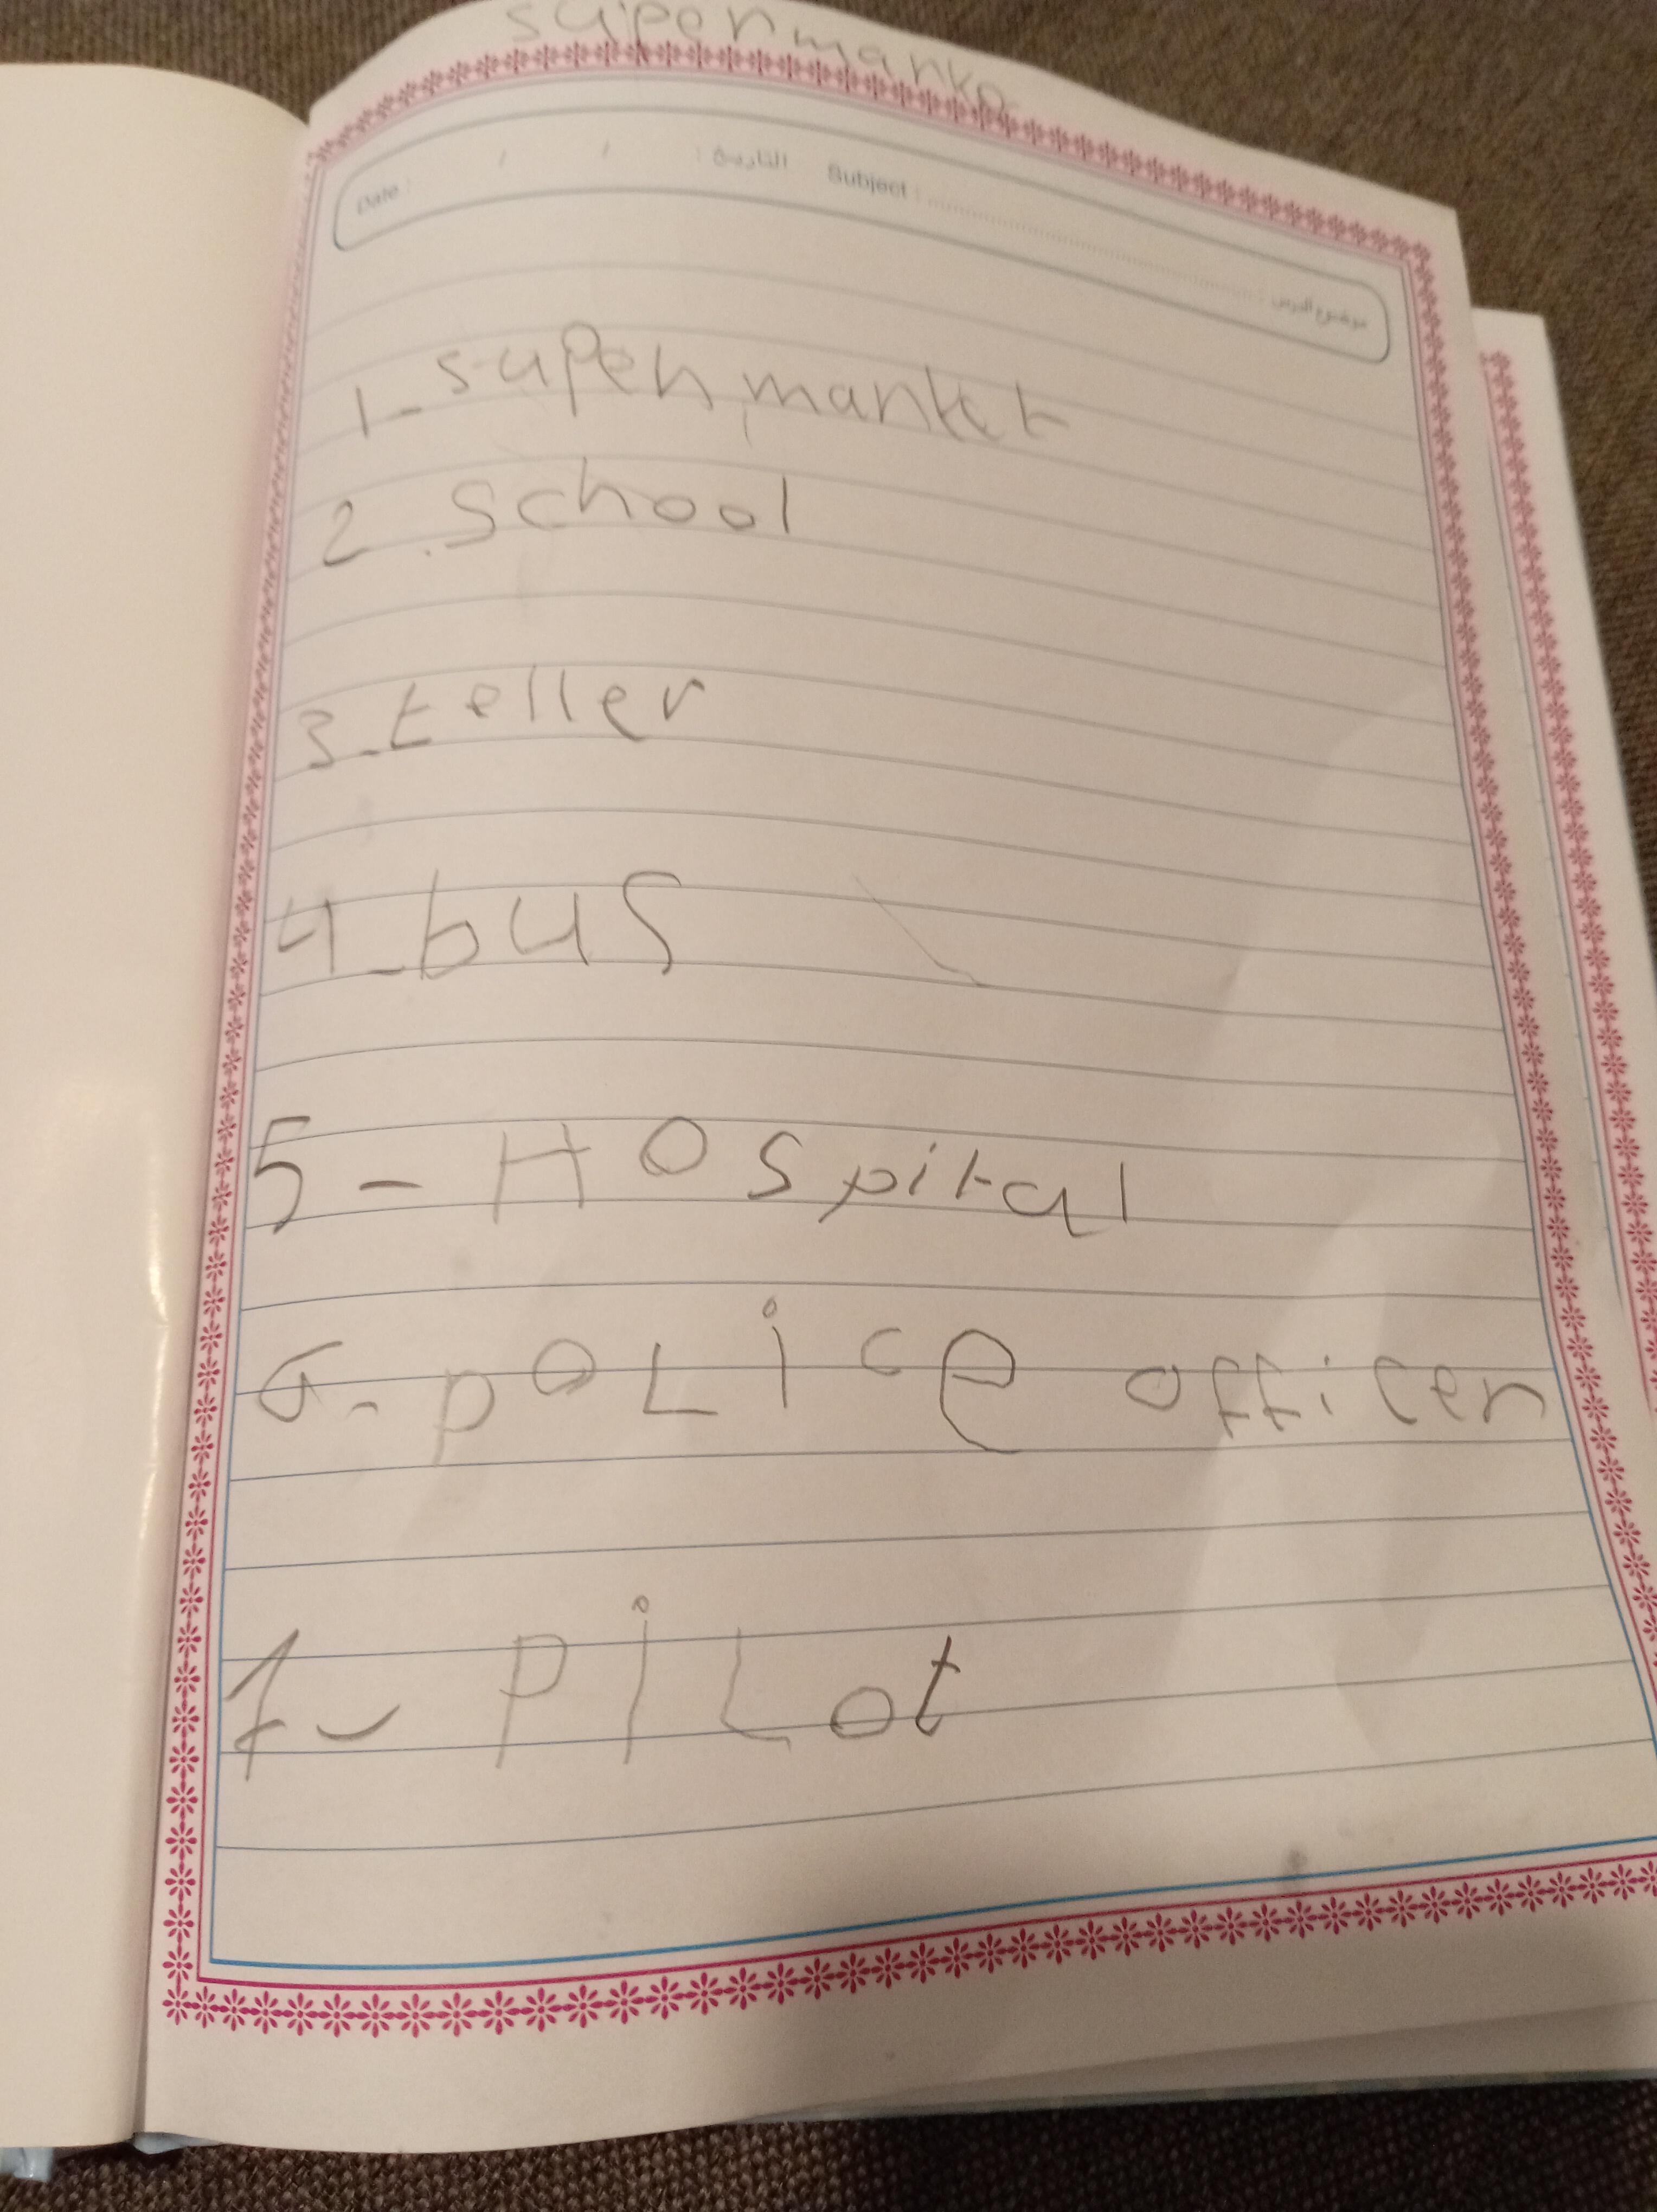 supermarke
Date : / / التاريخ : Subject : موضوع الدرس
1-supermarket
2.school
3-teller
4-bus
5-HOspital
6-poLice officer
7-PiLot